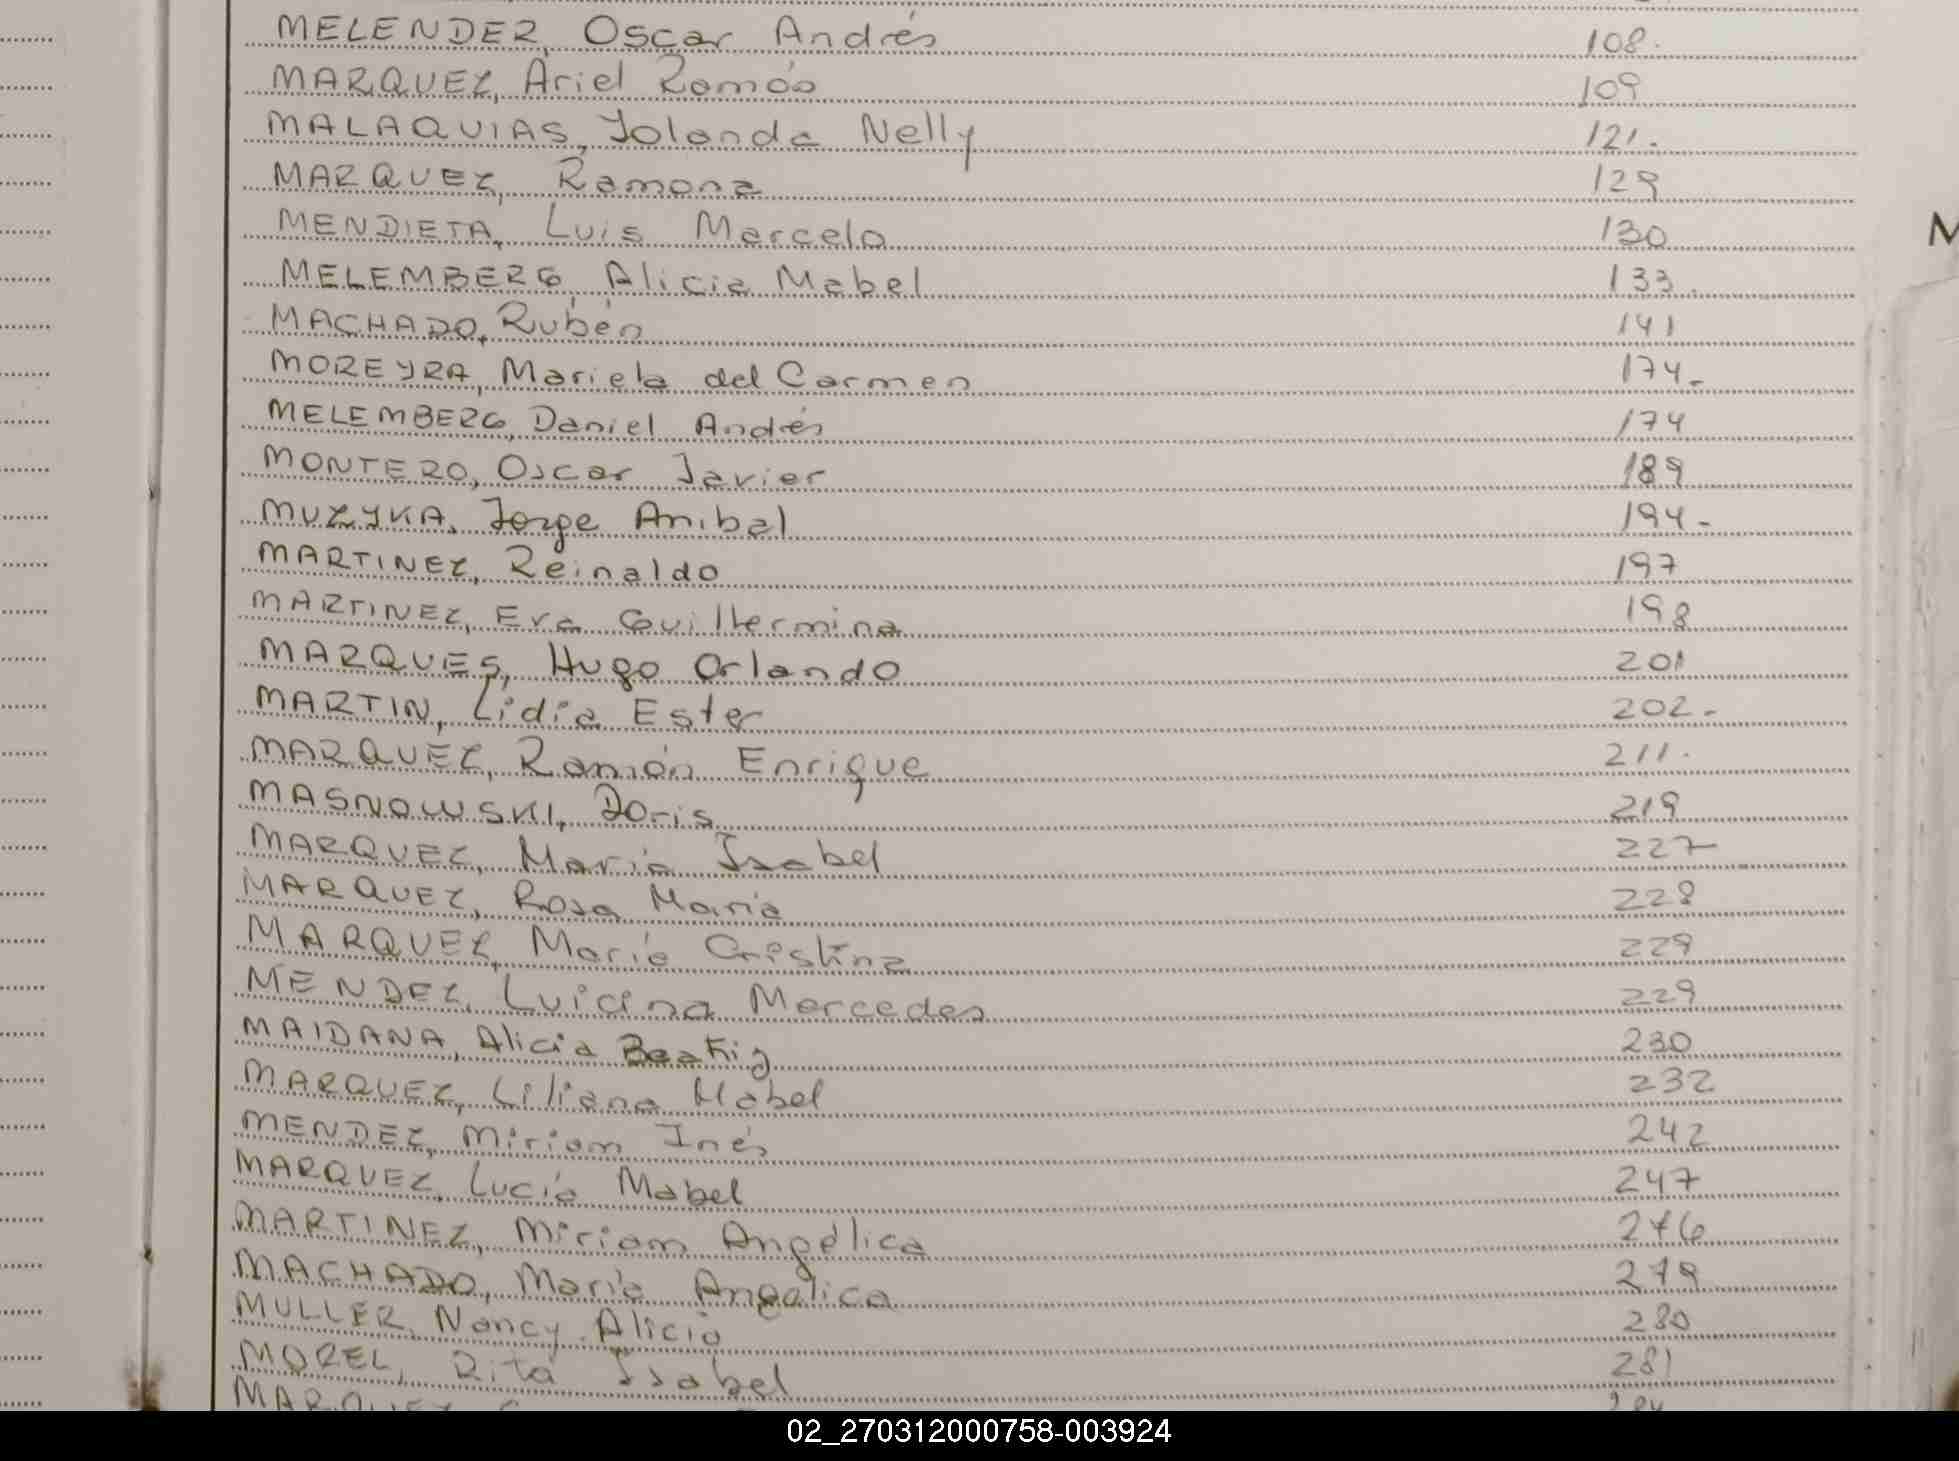 MELENDER, Oscar Andrés 108.
MARQUEZ, Ariel Ramón 109
MALAQUIAS, Yolanda Nelly 121.
MARQUEZ, Ramona 129
MENDIETA, Luis Marcelo 130
MELEMBERG, Alicia Mabel 133.
MACHADO, Rubén 141
MOREYRA, Mariela del Carmen 174.
MELEMBERG, Daniel Andrés 174
MONTERO, Oscar Javier 189
MUZYKA, Jorge Anibal 194.
MARTINEZ, Reinaldo 197
MARTINEZ, Eva Guillermina 198
MARQUES, Hugo Orlando 201
MARTIN, Lidia Ester 202.
MARQUEZ, Ramón Enrique 211.
MASNOWSKI, Doris 219
MARQUEZ, María Isabel 227
MARQUEZ, Rosa María 228
MARQUEZ, María Cristina 229
MENDEZ, Luicina Mercedes 229
MAIDANA, Alicia Beatriz 230
MARQUEZ, Liliana Mabel 232
MENDEZ, Miriam Inés 242
MARQUEZ, Lucía Mabel 247
MARTINEZ, Miriam Angélica 276
MACHADO, María Angélica 279
MULLER, Nancy Alicia 280
MOREL, Rita Isabel 281
02_270312000758-003924